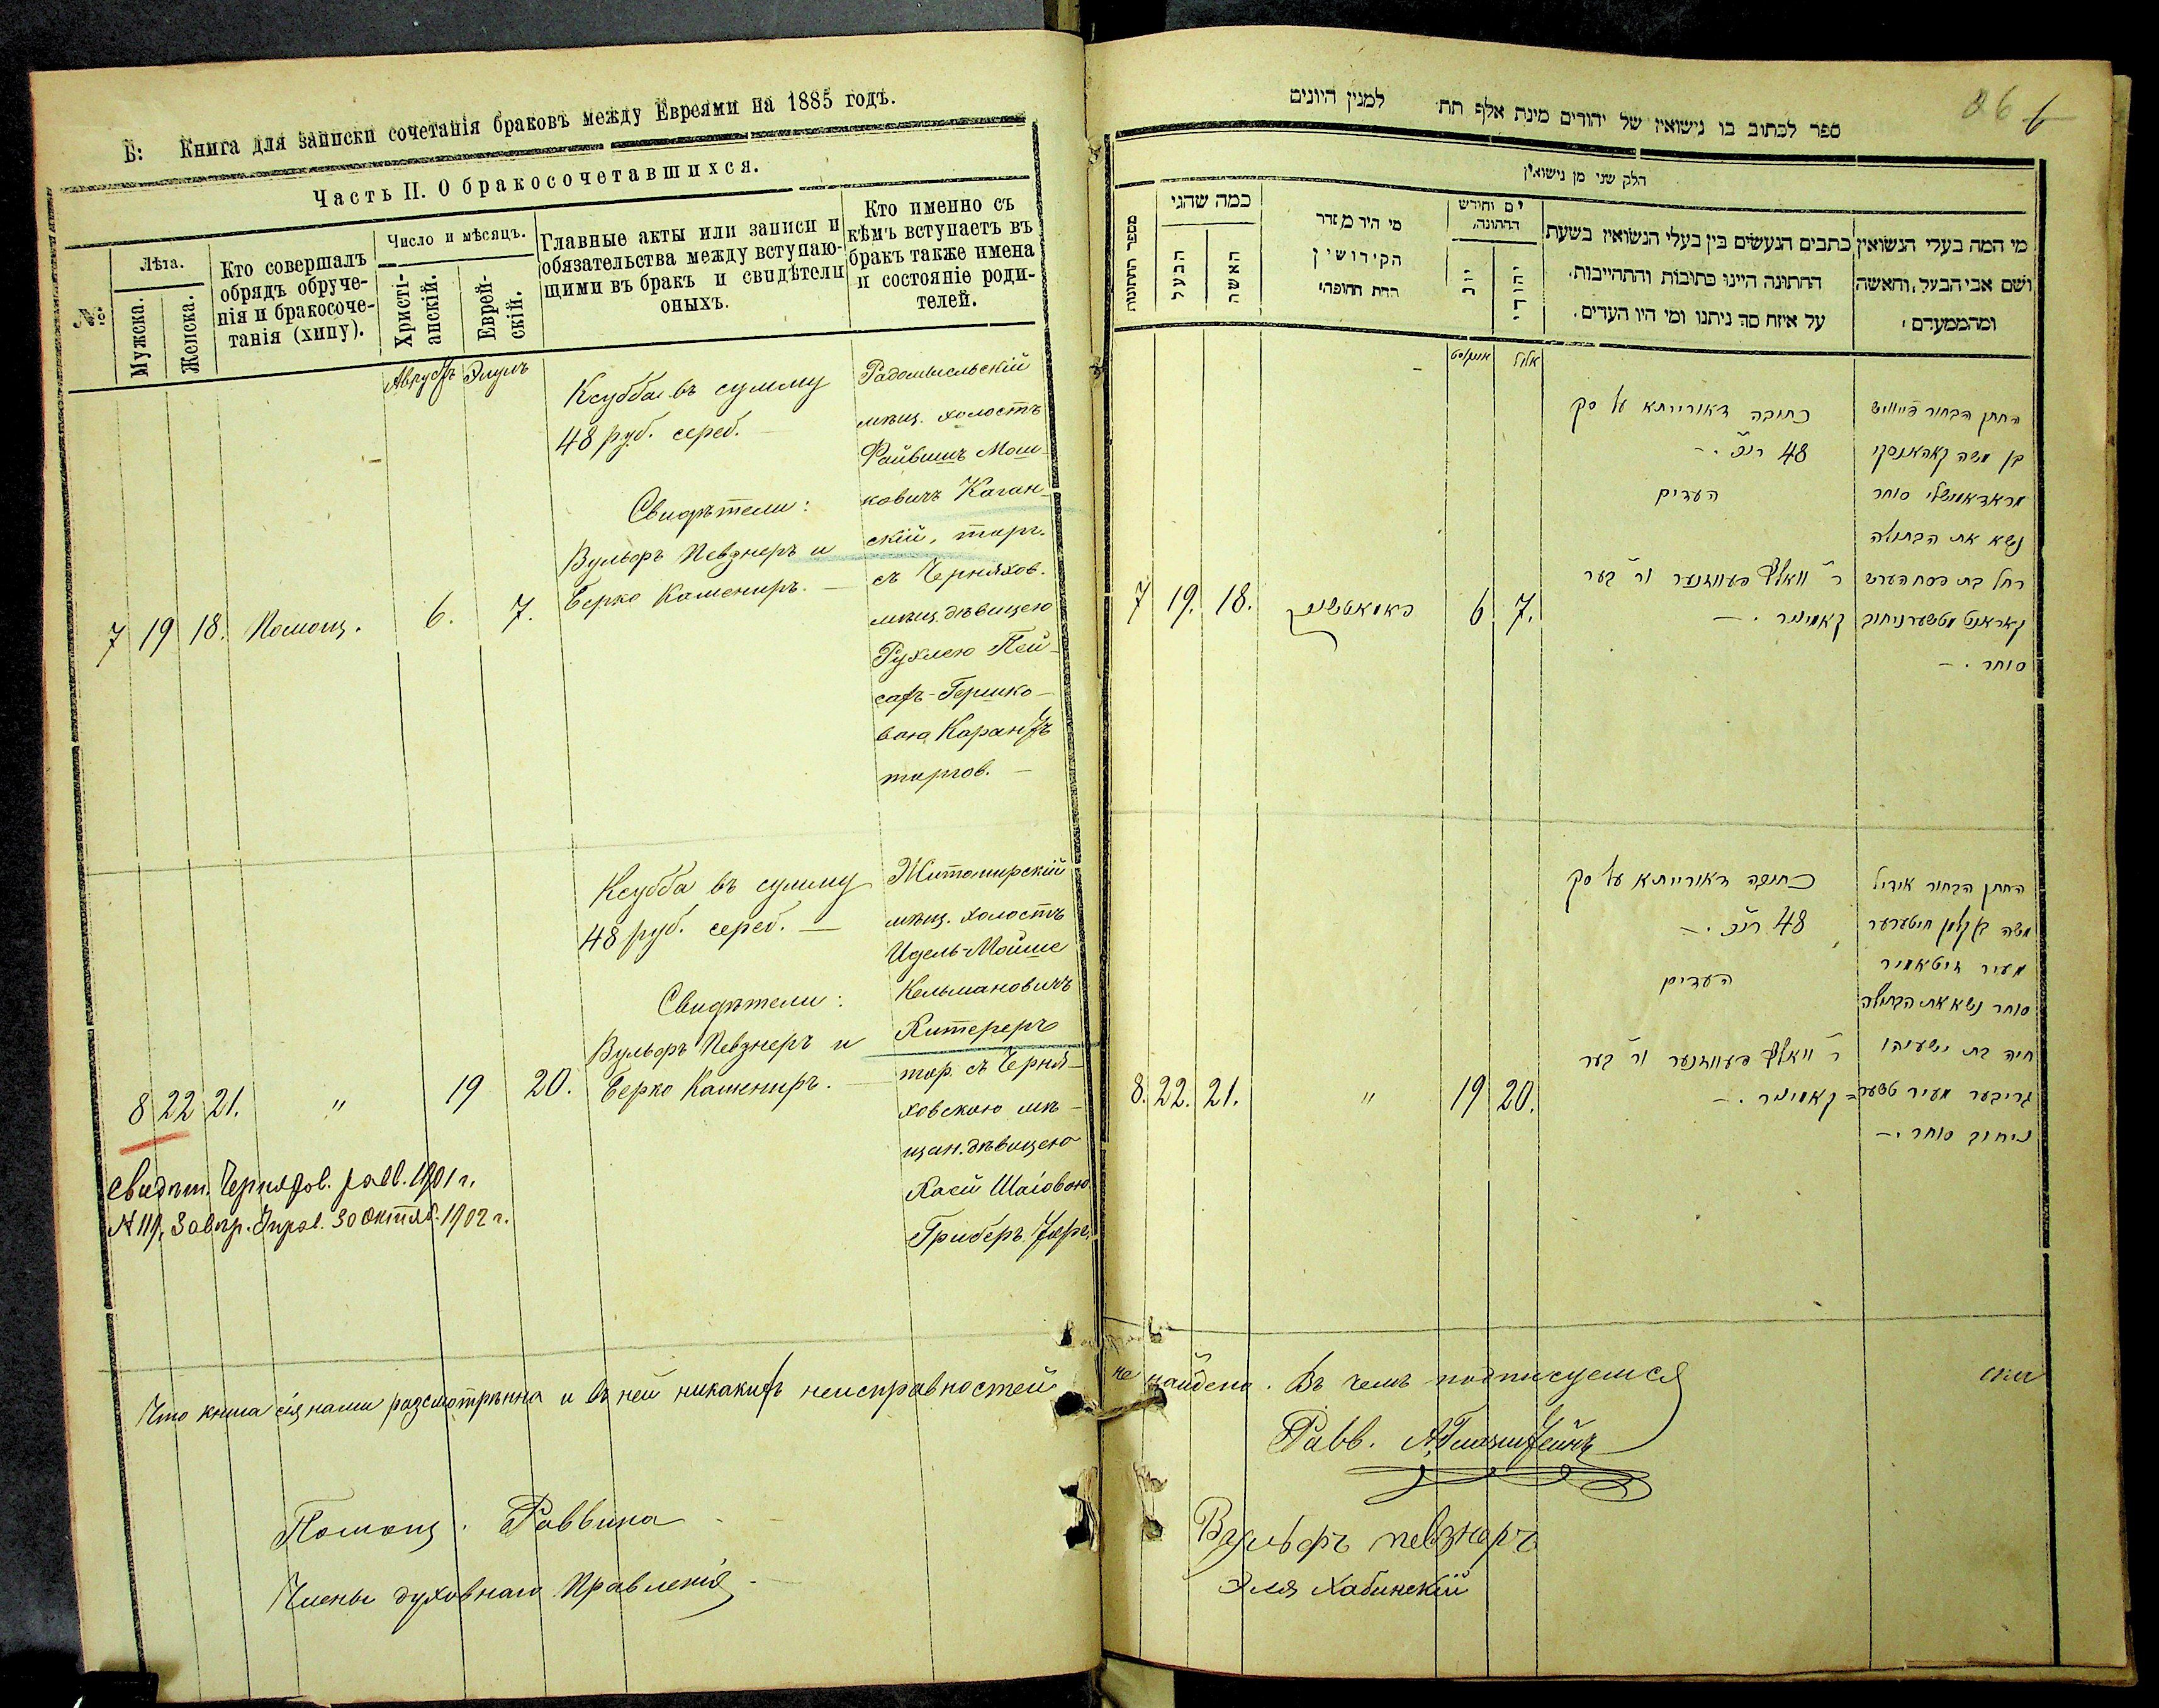 Б: Книга для записки сочетанія браковъ между Евреями на 1885 годъ.
Часть II. О бракосочетавшихся.
№
Лѣта.
Мужска.
Женска.
Кто совершалъ
обрядъ обруче-
нія и бракосоче-
танія (хипу).
Число и мѣсяцъ.
Христі-
анскій.
Еврей-
скій.
Главные акты или записи и
обязательства между вступаю-
щими въ бракъ и свидѣтели
оныхъ.
Кто именно съ
кѣмъ вступаетъ въ
бракъ также имена
и состояніе роди-
телей.
Августъ Элулъ
7 19 18. Помощ. 6. 7.
Ксубба въ сумму
48 руб. сереб. —
Свидѣтели:
Вульфъ Певзнеръ и
Берко Камениръ. —
Радомысльскій
мѣщ. холостъ
Файвишъ Мош-
ковичъ Каган-
скій, торг.
съ Черняхов.
мѣщ. дѣвицею
Рухлею Пей-
сахъ-Гершко-
вою Карантъ
торгов. —
8 22 21. " 19 20.
Ксубба въ сумму
48 руб. сереб. —
Свидѣтели:
Вульфъ Певзнеръ и
Берко Камениръ. —
Житомирскій
мѣщ. холостъ
Идель-Мойше
Кельмановичъ
Хитереръ
тор. съ Черня-
ховскою мѣ-
щан. дѣвицею
Хаей Шаіовою
Гриберъ торг.
Свидѣт. Черняхов. равв. 1901 г.
N 119, Завѣр. Управ. 30 Октяб. 1902 г.
Что книга сія нами разсмотрѣнна и въ ней никакихъ неисправностей
Помощ. Раввина
Члены духовнаго Правленія
ספר לכתוב בו נישואין של יהודים מינת אלף תת למנין היונים
חלק שני מן נישואין
מספר החתונות
כמה שהגי
הבעל
האשה
מי היר מזדר
הקידושין
תחת חחופה,
ים וחידש
החתונה,
יהודי
כתבים הנעשים בין בעלי הנשואין בשעת
החתונה היינו כתובות והתהייבות.
על איזח סך ניתנו ומי היו העדים.
מי המה בעלי הנשואין
ושם אבי הבעל, והאשה
ומהממעדם,
אויגוסט אלול
7 19. 18. 6 7.
כתובה דאורייתא על סך
48 רו"כ. —
העדים
ר' וואלף פעווזנער ור' בער
קאמיניר. —
החתן הבחור פייוויש
בן משה קאהאנסקי
מראדאמישלי סוחר
נשא את הבתולה
רחל בת פסח הערש
קאראנט מטשערניחוב
סוחר. —
8. 22. 21. " 19 20.
כתובה דאורייתא על סך
48 רו"כ. —
העדים
ר' וואלף פעווזנער ור' בער
קאמיניר. —
החתן הבחור אידיל
משה בן קלמן חיטערער
מעיר זיטאמיר
סוחר נשא את הבתולה
חיה בת ישעיהו
גריבער מעיר טשער=
ניחוב סוחר. —
не найдено. Въ чемъ подписуемся
Равв.
Вульфъ Певзнеръ
Эля Хабинскій